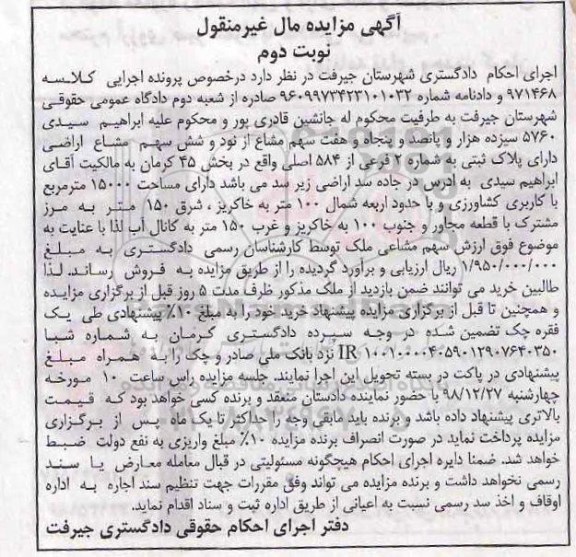 آگهی مزایده مال غیرمنقول
نوبت دوم
اجرای احکام دادگستری شهرستان جیرفت در نظر دارد درخصوص پرونده اجرایی کلاسه
۹۷۱۴۶۸ و دادنامه شماره ۹۶۰۹۹۷۳۴۲۳۱۰۱۰۳۲ صادره از شعبه دوم دادگاه عمومی حقوقی
شهرستان جیرفت به طرفیت محکوم له جانشین قادری پور و محکوم علیه ابراهیم سیدی
۵۷۶۰ سیزده هزار و پانصد و پنجاه و هفت سهم مشاع از نود و شش سهم مشاع اراضی
دارای پلاک ثبتی به شماره ۲ فرعی از ۵۸۴ اصلی واقع در بخش ۴۵ کرمان به مالکیت آقای
ابراهیم سیدی به ادرس در جاده سد اراضی زیر سد می باشد دارای مساحت ۱۵۰۰۰ مترمربع
با کاربری کشاورزی و با حدود اربعه شمال ۱۰۰ متر به خاکریز ، شرق ۱۵۰ متر به مرز
مشترک با قطعه مجاور و جنوب ۱۰۰ به خاکریز و غرب ۱۵۰ متر به کانال آب لذا با عنایت به
موضوع فوق ارزش سهم مشاعی ملک توسط کارشناسان رسمی دادگستری به مبلغ
۱/۹۵۰/۰۰۰/۰۰۰ ریال ارزیابی و برآورد گردیده را از طریق مزایده به فروش رساند. لذا
طالبین خرید می توانند ضمن بازدید از ملک مذکور ظرف مدت ۵ روز قبل از برگزاری مزایده
و همچنین تا قبل از برگزاری مزایده پیشنهاد خرید خود را به مبلغ ۱۰٪ پیشنهادی طی یک
فقره چک تضمین شده در وجه سپرده دادگستری کرمان به شماره شبا
IR ۱۰۰۱۰۰۰۰۴۰۵۹۰۱۲۹۰۷۶۴۰۳۵۰ نزد بانک ملی صادر و چک را به همراه مبلغ
پیشنهادی در پاکت در بسته تحویل این اجرا نمایند. جلسه مزایده راس ساعت ۱۰ مورخه
چهارشنبه ۹۸/۱۲/۲۷ با حضور نماینده دادستان منعقد و برنده کسی خواهد بود که قیمت
بالاتری پیشنهاد داده باشد و برنده باید مابقی وجه را حداکثر تا یک ماه پس از برگزاری
مزایده پرداخت نماید در صورت انصراف برنده مزایده ۱۰٪ مبلغ واریزی به نفع دولت ضبط
خواهد شد. ضمنا دایره اجرای احکام هیچگونه مسئولیتی در قبال معامله معارض یا سند
رسمی نخواهد داشت و برنده مزایده می تواند وفق مقررات جهت تنظیم سند اجاره به اداره
اوقاف و اخذ سد رسمی نسبت به اعیانی از طریق اداره ثبت و سناد اقدام نماید.
دفتر اجرای احکام حقوقی دادگستری جیرفت